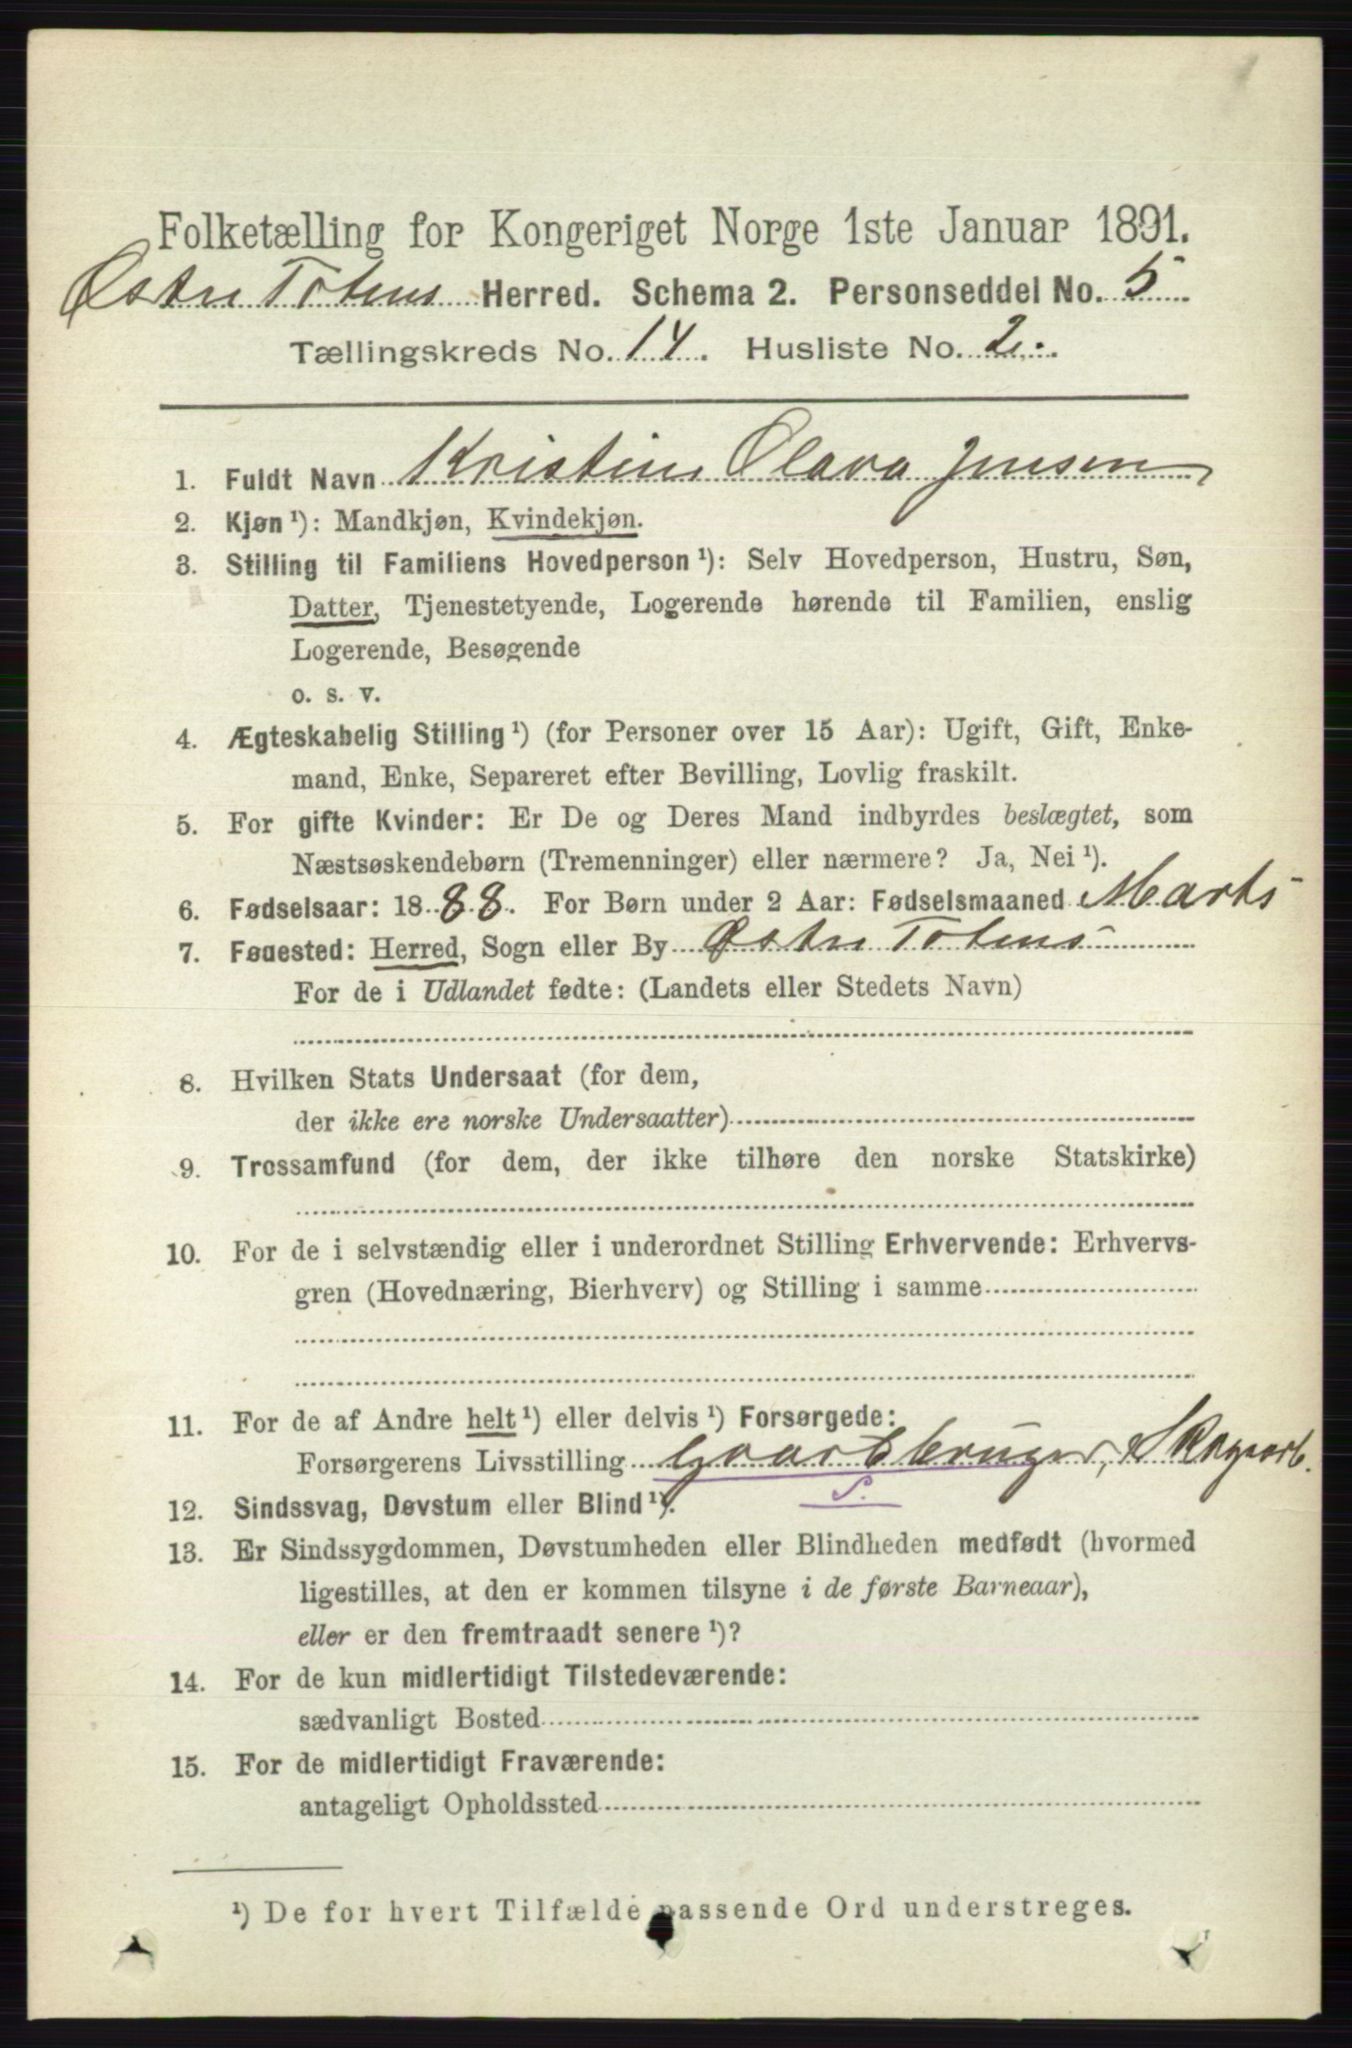 Folketælling for Kongeriget Norge 1ste Januar 1891.
Østre Totens Herred. Schema 2. Personseddel No. 5
Tællingskreds No. 14. Husliste No. 2.
1. Fuldt Navn Kristine Olava Jensen
2. Kjøn¹): Mandkjøn, Kvindekjøn.
3. Stilling til Familiens Hovedperson¹): Selv Hovedperson, Hustru, Søn,
Datter, Tjenestetyende, Logerende hørende til Familien, enslig
Logerende, Besøgende
o. s. v.
4. Ægteskabelig Stilling¹) (for Personer over 15 Aar): Ugift, Gift, Enke-
mand, Enke, Separeret efter Bevilling, Lovlig fraskilt.
5. For gifte Kvinder: Er De og Deres Mand indbyrdes beslægtet, som
Næstsøskendebørn (Tremenninger) eller nærmere? Ja, Nei¹).
6. Fødselsaar: 1888. For Børn under 2 Aar: Fødselsmaaned Marts
7. Fødested: Herred, Sogn eller By Østre Totens
For de i Udlandet fødte: (Landets eller Stedets Navn)
8. Hvilken Stats Undersaat (for dem,
der ikke ere norske Undersaatter)
9. Trossamfund (for dem, der ikke tilhøre den norske Statskirke)
10. For de i selvstændig eller i underordnet Stilling Erhvervende: Erhvervs-
gren (Hovednæring, Bierhverv) og Stilling i samme
11. For de af Andre helt¹) eller delvis¹) Forsørgede:
Forsørgerens Livsstilling Gaardbruger, Skogarb.
S.
12. Sindssvag, Døvstum eller Blind¹).
13. Er Sindssygdommen, Døvstumheden eller Blindheden medfødt (hvormed
ligestilles, at den er kommen tilsyne i de første Barneaar),
eller er den fremtraadt senere¹)?
14. For de kun midlertidigt Tilstedeværende:
sædvanligt Bosted
15. For de midlertidigt Fraværende:
antageligt Opholdssted
¹) De for hvert Tilfælde passende Ord understreges.